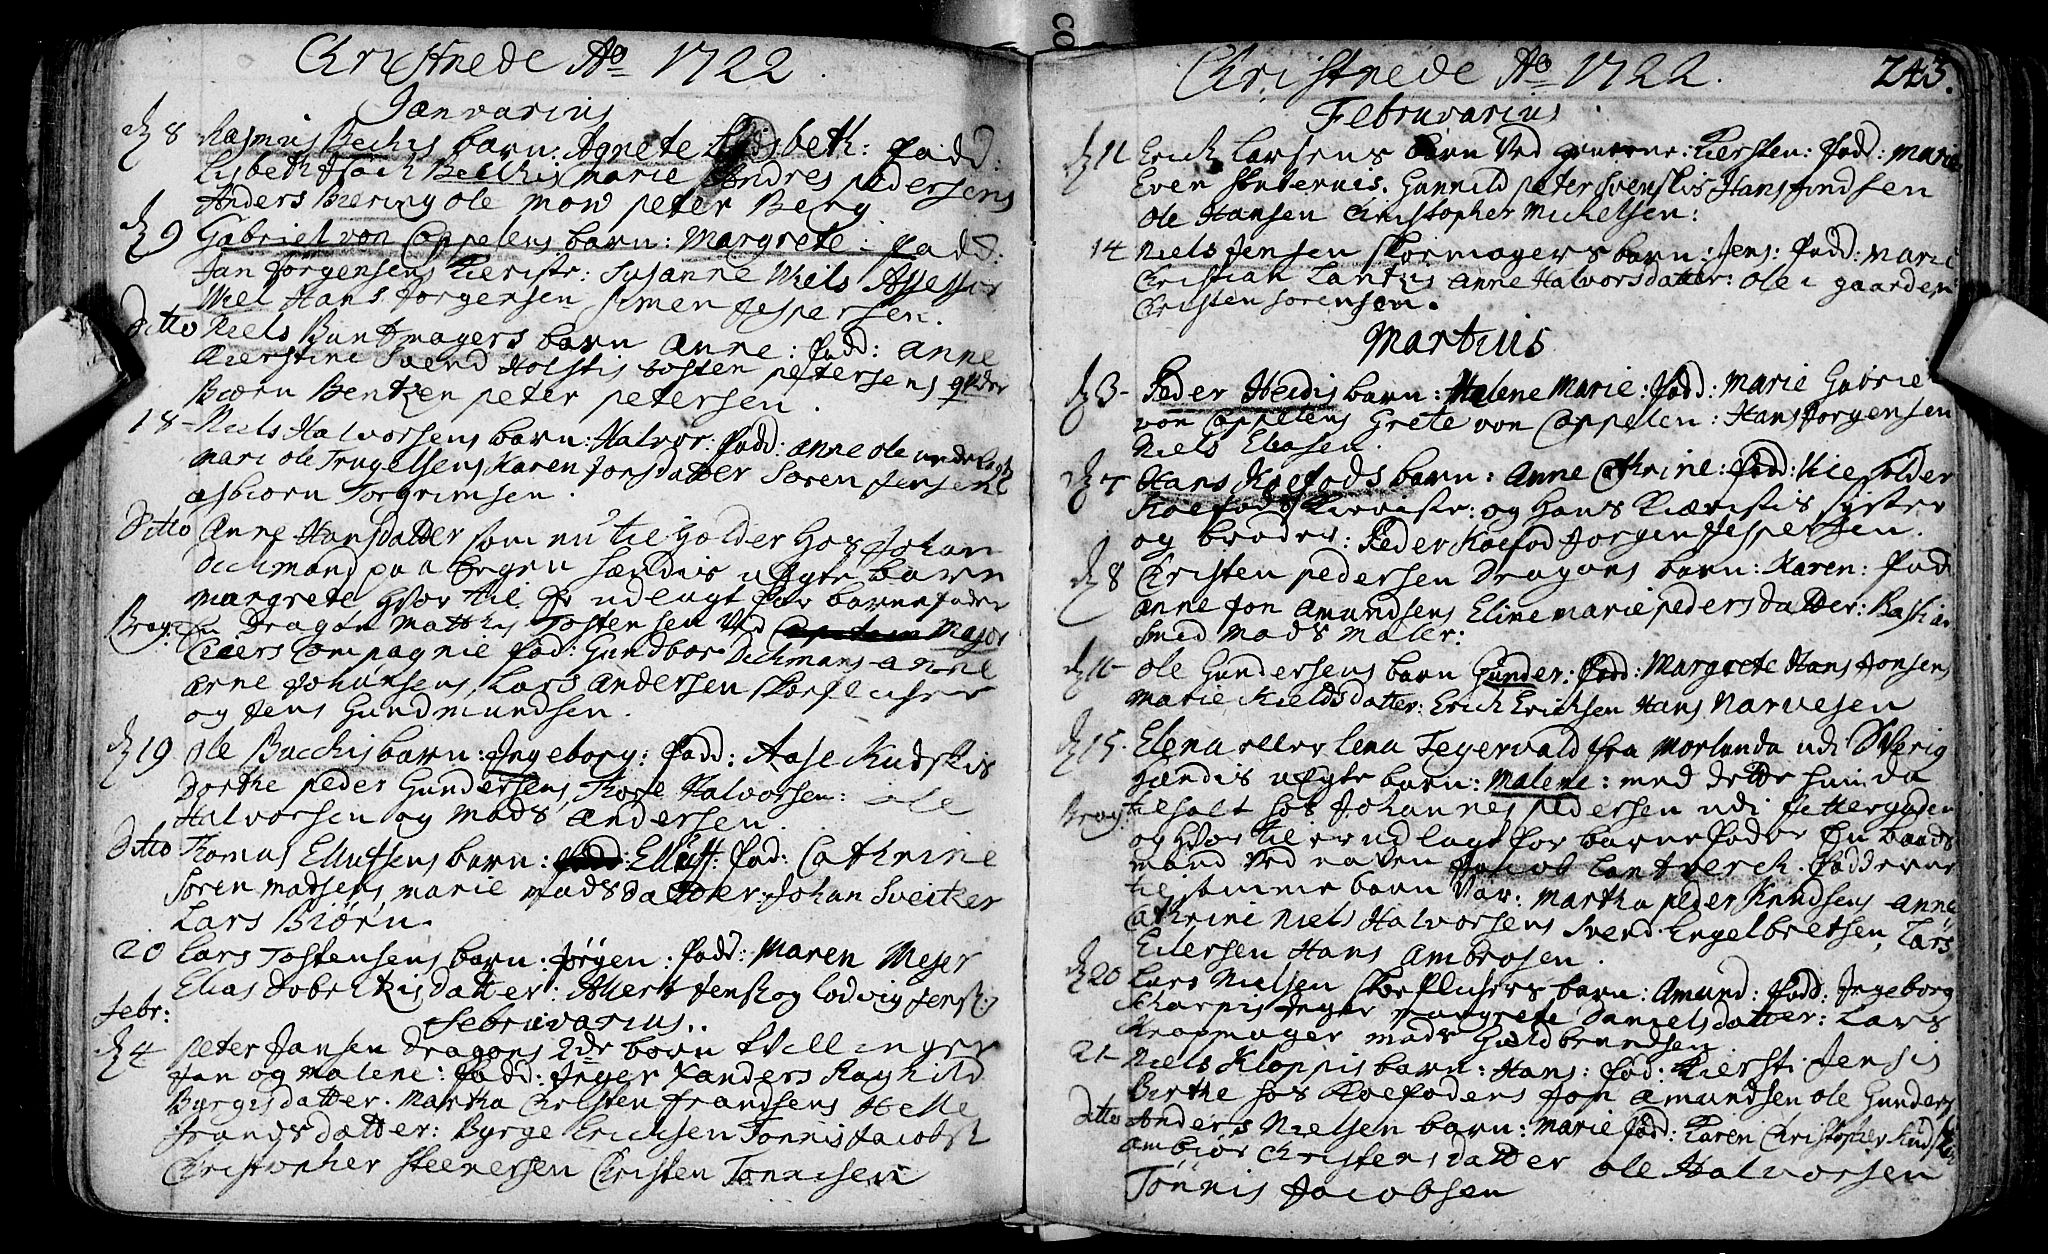 Christnede Ao 1722
Janvarius
d 8 Rasmus Bechis barn: Agnete Lisbeth: Fadd:
Lisbeth Isach Bechis marie Andres pedersens
Anders Biering ole mow peter Berg
d 9 Gabriel von Cappelens barn: Margrete: Fadd:
Jan Jørgensens Kieriste: Susanne Niels Assessor
Wiel Hans Jørgensen Simen Jespersen.
Ditto Niels Buntmagers barn Anne: Fadd: Anne
Kierstine Svend Holstis tosten petersens
Biørn Bentzen peter petersen.
18 - Niels Halvorsens barn: Halvor: Fadd: anne ole
mari ole Trugelsens Karen Jorsdatter Søren Jensen
asbiørn Torgrimsen.
Ditto Anne Hansdatter som nu til holder hos Johan
Dichmand paa Bragen hændis uEgte barn
Margrete hvor til er udlagt for barnefader
Brag: En Dragon Matthis Tostensen ved Major
Ceciers Compagnie Fad: Gundbor Dichmans anne
Arne Johansens Lars Andersen Skoeflicher
og Jens Gundmundsen.
d 19 ole Bucchis barn: Ingeborg: Fadd: Aase Kudskis
Dorthe peder Gundersens, Tore Halvorsen: ole
Halvorsen og Mads Andersen.
Ditto Thomas Elluffsens barn: Elluff: Fad: Cathrine
Søren madsens, marie Madsdatter: Johan Sveitzer
Lars Biørn.
20 Lars Tostensens barn: Jørgen: Fadd: Maren Mejer
Elias Dobeltzisdatter: Allert Jensen og Lodvig Jensen:
Febr: Februvarius..
d 4 peter Jansen Dragons 2de børn tvillinger
Jan og Malene: Fadd: Inger Xanders Raghild
Byrgisdatter. Martha Christen Frandsens Helle
Frandsdatter: Byrge Ericksen Tønnis Jacobsen
Christopher Steenersen Christen Tønnisen
Christnede Ao 1722. 243.
Februvarius
d 11 Erich Larsens barn ved grinerne: Kiersten: Fad: marie
Even Gunnild peter Svenskis Hans findsen
ole Hansen Christopher Michelsen:
14 Niels Jensen Skomagers barn: Jens: Fadd: Marie
Christian Lantzis Anne Halvorsdatter: ole i gaarden
Christen Sørensen.
Martius
d 3 - Peder Heidis barn: Malene Marie: Fad: Marie Gabriel
von Cappelens Grete von Cappelen: Hans Jørgensen
Niels Eliasen.
d 7 Hans Koefods barn: Anne Cathrine: Fad: Peder
Koefods Kieriste: og Hans Kiæristis Syster
og broder: Peder Koefod Jørgen Jespersen.
d 8 Christen pedersen Dragons barn: Karen: Fad
Anne Jon Amundsens Eline marie pedersdatter: Bastian
Smid Mads Maler:
d 10 - ole Gundersens barn Gunder: Fad: Margrete Hans Jonsens
Marie Kieldsdatter: Erich Erichsen Hans Narvesen
d 15. Elena eller Lena Tegervald fra Morlanda udi Sverig
hændis uEgte barn: Malene: med dette hun da
Brag: tilholt hos Johannes pedersen udi
og hvor til er udlagt for barnefader En baads
mand ved naven Jacob Lantverck. Fadderne
til samme barn var: Martha peder Knudsens Anne
Cathrine Niels Halvorsens Svend Engelbretsen, Lars
Eilersen Hans Ambrosen.
d 20 Lars Nielsen Skoeflichers barn: Amund: Fad: Ingeborg
Scharpis Inger margrete Danielsdatter: Lars
Knapmager Mads Guldbrandsen
21 - Niels Kloppis barn: Hans: Fad: Kiersti Jensis
Birthe hos Koefodens Jon Amundsen ole Gunders
Ditto Anders Nielsen barn: Marie Fad: Karen Christopher
Ambiør Christensdatter ole Halvorsen
Tønnis Jacobsen